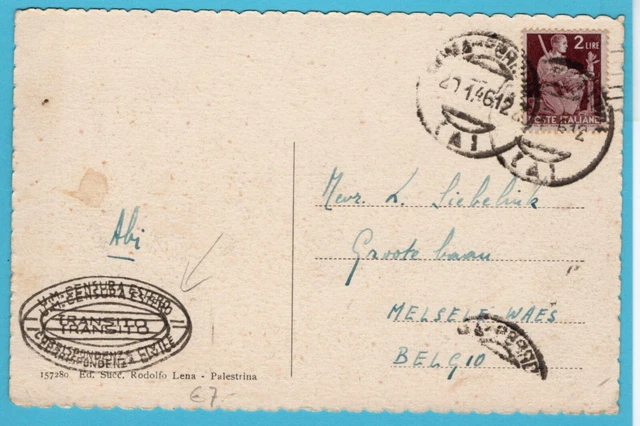 2 LIRE
POSTE ITALIANE
1.46.12
(A)
(A)
Mevr. L. Siebelink
Groote baan
MELSELE WAES
BELGIO
Abi
U.M. CENSURA ESTERO
TRANSITO
CORRISPONDENZA CIVILE
157280 Ed. Succ. Rodolfo Lena - Palestrina
€7.-